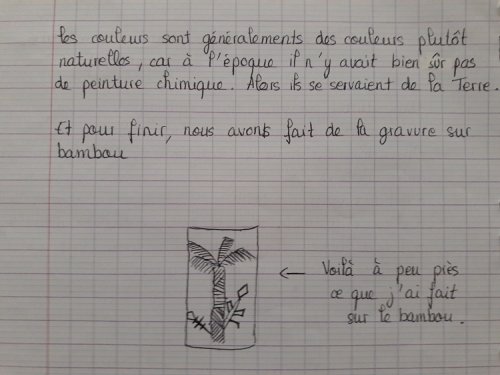 Les couleurs sont généralements des couleurs plutôt
naturelles, car à l'époque il n'y avait bien sûr pas
de peinture chimique. Alors ils se servaient de la Terre.
Et pour finir, nous avons fait de la gravure sur
bambou
← Voilà à peu près
ce que j'ai fait
sur le bambou.